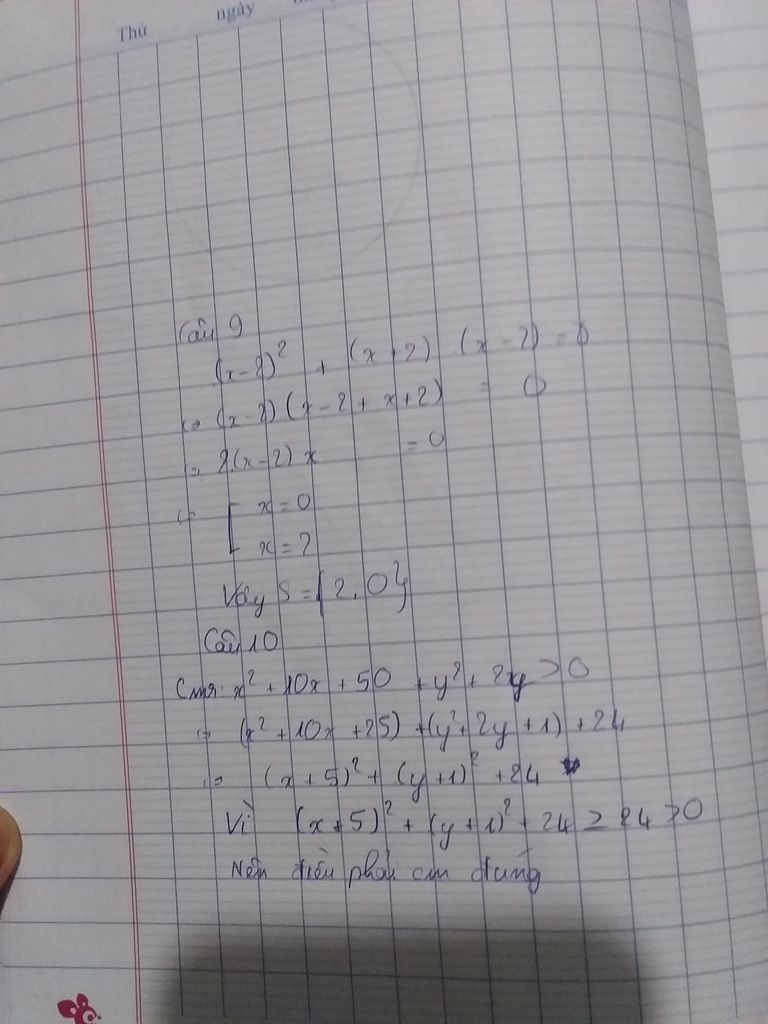 Thứ ngày
Câu 9
(x-2)² + (x+2) (x-2) = 0
⇔ (x-2)(x-2+x+2) = 0
= 2(x-2) x = 0
⇔ [ x = 0
x = 2
Vậy S = {2, 0}
Câu 10
Cmr: x² + 10x + 50 + y² + 2y > 0
⇔ (x² + 10x + 25) + (y² + 2y + 1) + 24
⇔ (x+5)² + (y+1)² + 24
Vì (x+5)² + (y+1)² + 24 ≥ 24 > 0
Nên điều phải cm đúng